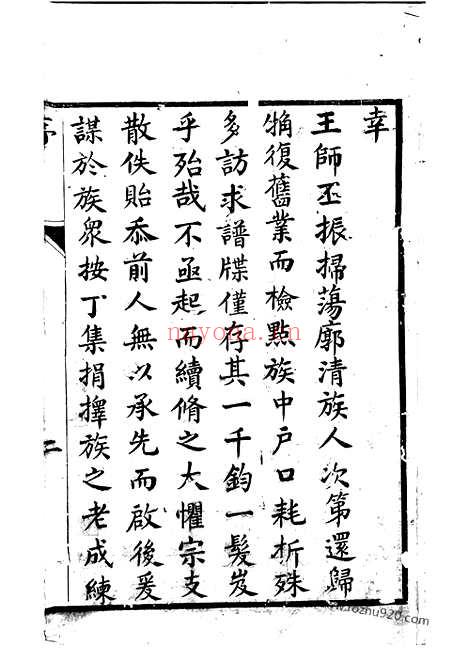 幸
王師丕振掃蕩廓清族人次第還歸
稍復舊業而檢點族中戶口耗折殊
多訪求譜牒僅存其一千鈞一髮岌
乎殆哉不亟起而續脩之大懼宗支
散佚貽忝前人無以承先而啟後爰
謀於族眾按丁集捐擇族之老成練
二
nayona.cn
www.rozhu920.com